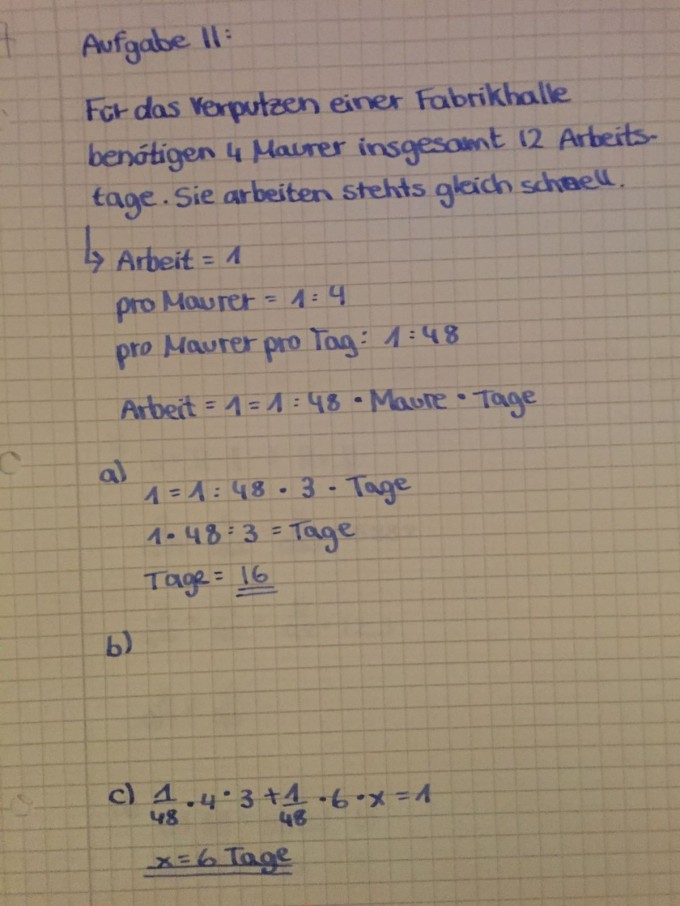 Aufgabe 11:
Für das Verputzen einer Fabrikhalle
benötigen 4 Maurer insgesamt 12 Arbeits-
tage. Sie arbeiten stehts gleich schnell.
↳ Arbeit = 1
pro Maurer = 1 : 4
pro Maurer pro Tag: 1 : 48
Arbeit = 1 = 1 : 48 · Maure · Tage
a)
1 = 1 : 48 · 3 · Tage
1 · 48 : 3 = Tage
Tage = 16
b)
c) 1/48 · 4 · 3 + 1/48 · 6 · x = 1
x = 6 Tage